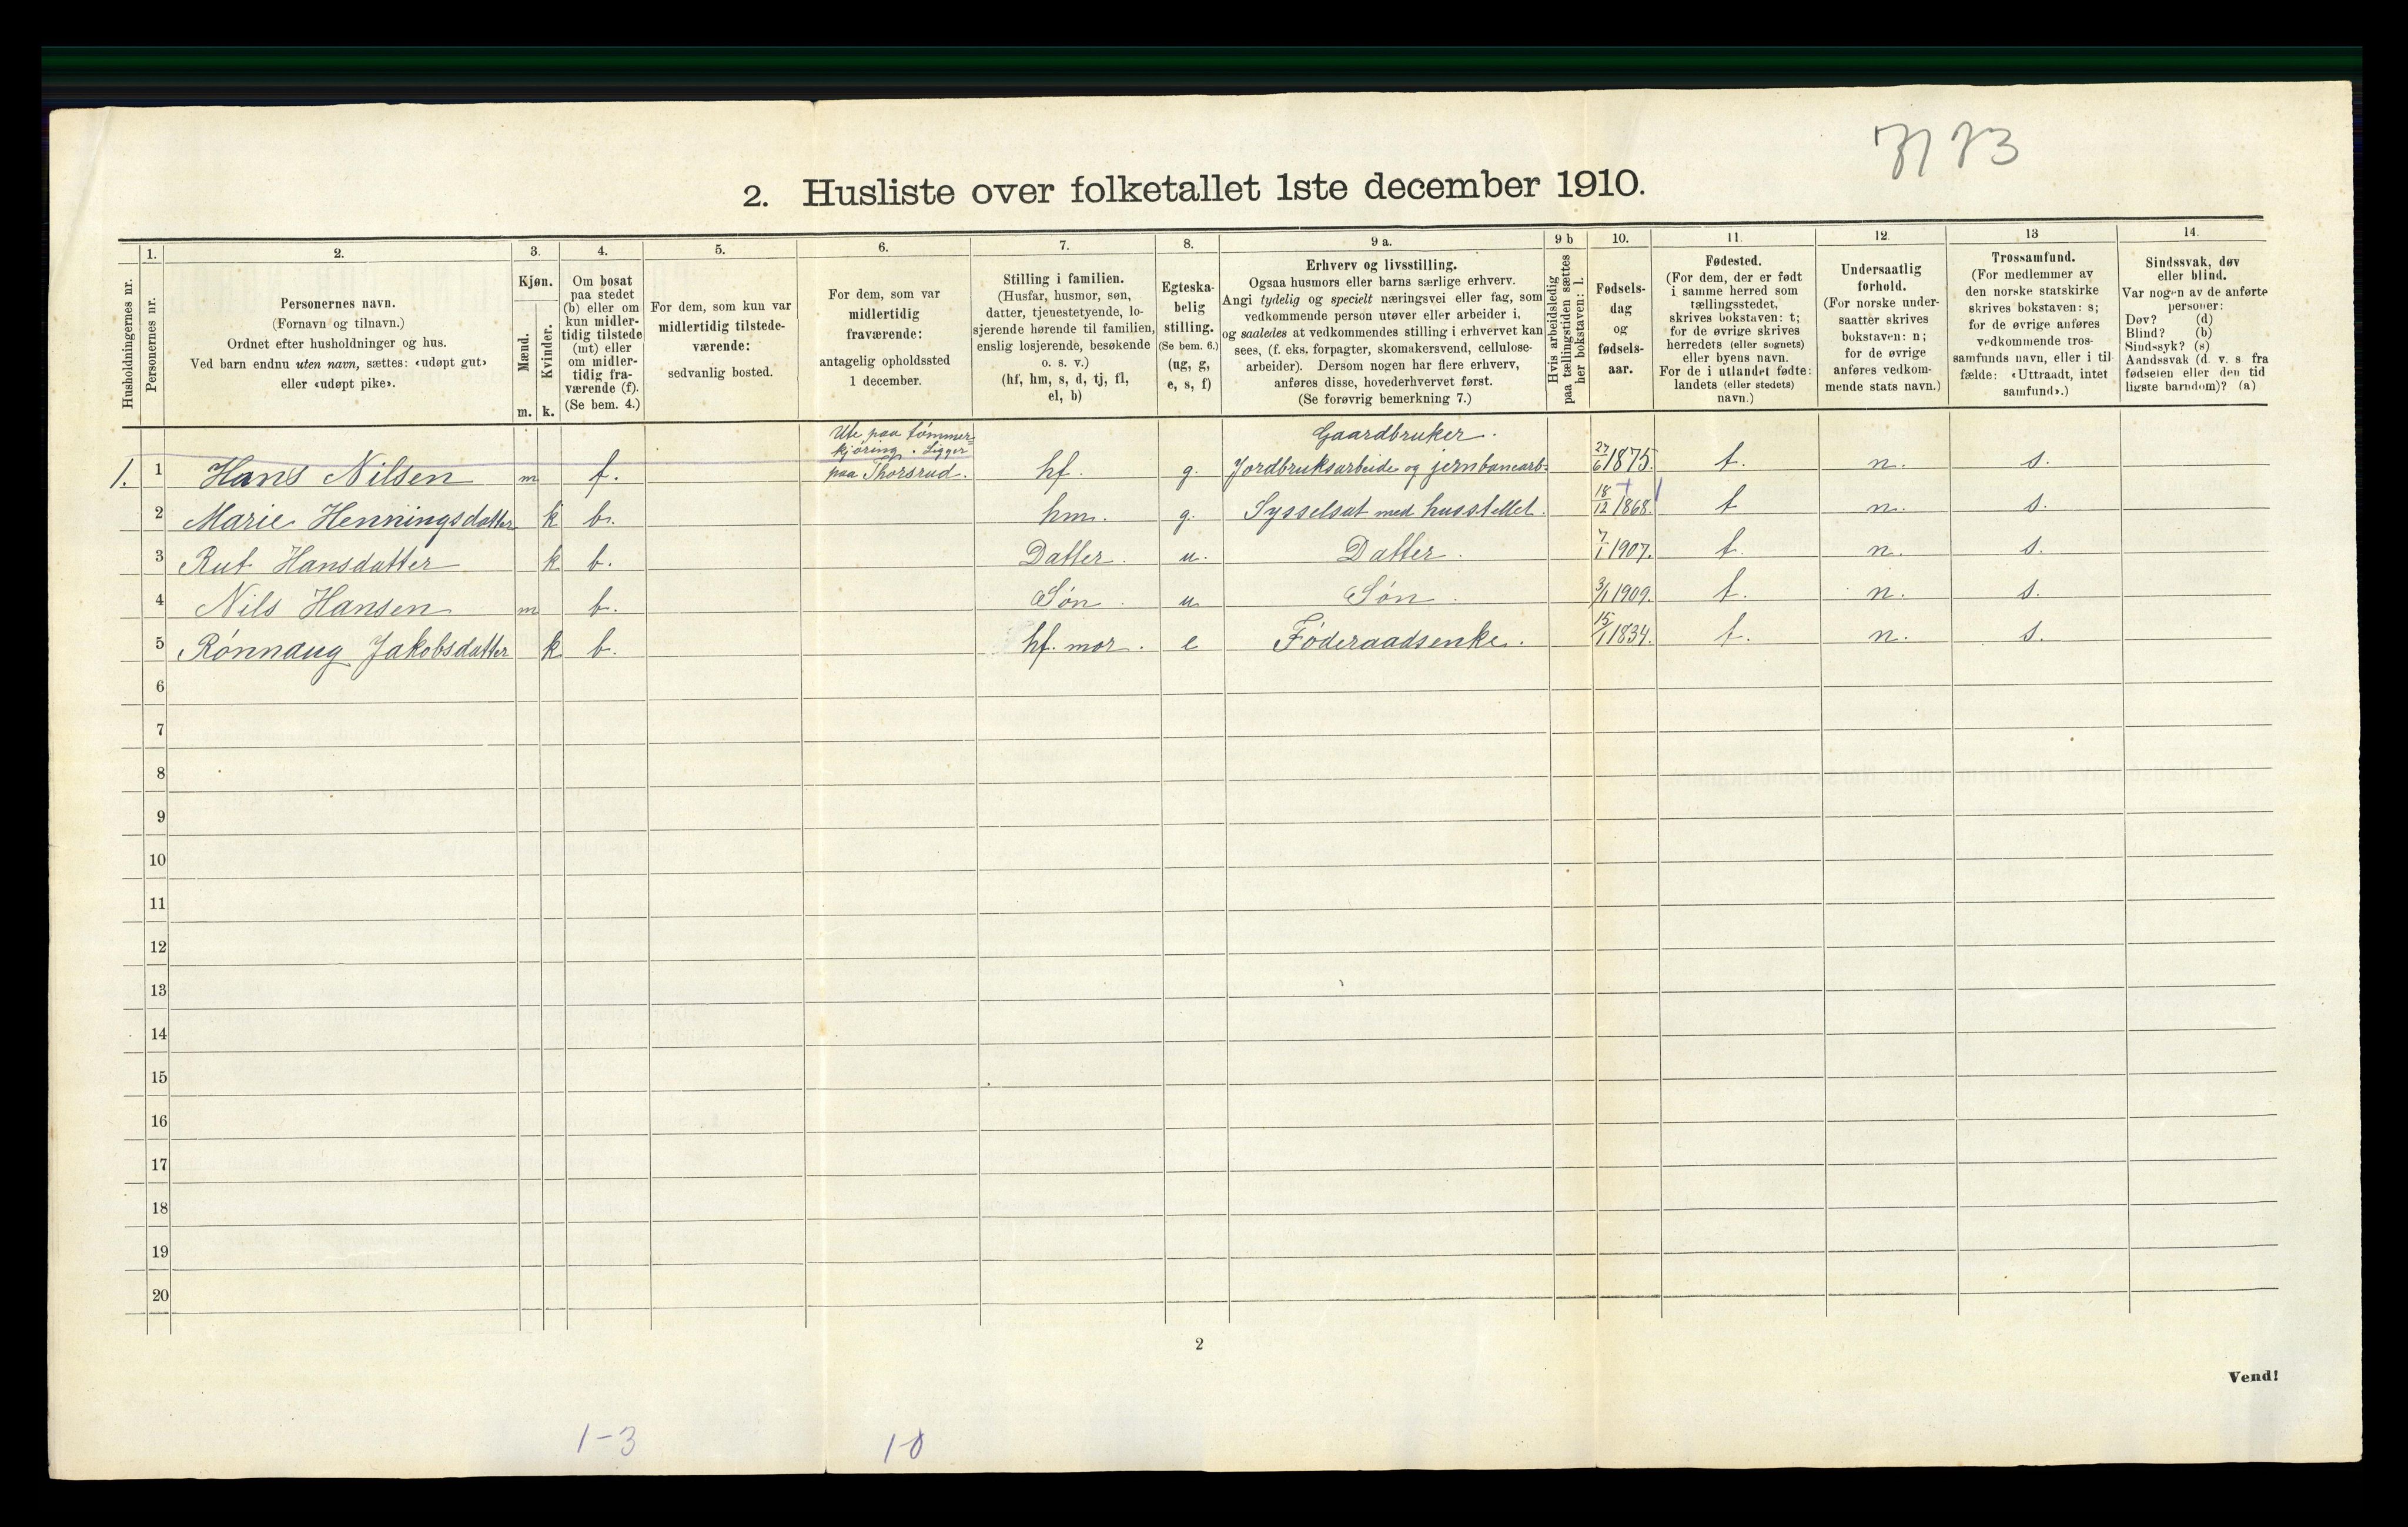 7173
2. Husliste over folketallet 1ste december 1910.
Husholdningernes nr.
1.
Personernes nr.
2.
Personernes navn.
(Fornavn og tilnavn.)
Ordnet efter husholdninger og hus.
Ved barn endnu uten navn, sættes: «udøpt gut»
eller «udøpt pike».
3.
Kjøn.
Mænd.
Kvinder.
m. k.
4.
Om bosat
paa stedet
(b) eller om
kun midler-
tidig tilstede
(mt) eller
om midler-
tidig fra-
værende (f).
(Se bem. 4.)
5.
For dem, som kun var
midlertidig tilstede-
værende:
sedvanlig bosted.
6.
For dem, som var
midlertidig
fraværende:
antagelig opholdssted
1 december.
7.
Stilling i familien.
(Husfar, husmor, søn,
datter, tjenestetyende, lo-
sjerende hørende til familien,
enslig losjerende, besøkende
o. s. v.)
(hf, hm, s, d, tj, fl,
el, b)
8.
Egteska-
belig
stilling.
(Se bem. 6.)
(ug, g,
e, s, f)
9 a.
Erhverv og livsstilling.
Ogsaa husmors eller barns særlige erhverv.
Angi tydelig og specielt næringsvei eller fag, som
vedkommende person utøver eller arbeider i,
og saaledes at vedkommendes stilling i erhvervet kan
sees, (f. eks. forpagter, skomakersvend, cellulose-
arbeider). Dersom nogen har flere erhverv,
anføres disse, hovederhvervet først.
(Se forøvrig bemerkning 7.)
9 b
Hvis arbeidsledig
paa tællingstiden sættes
her bokstaven: l.
10.
Fødsels-
dag
og
fødsels-
aar.
11.
Fødested.
(For dem, der er født
i samme herred som
tællingsstedet,
skrives bokstaven: t;
for de øvrige skrives
herredets (eller sognets)
eller byens navn.
For de i utlandet fødte:
landets (eller stedets)
navn.)
12.
Undersaatlig
forhold.
(For norske under-
saatter skrives
bokstaven: n;
for de øvrige
anføres vedkom-
mende stats navn.)
13
Trossamfund.
(For medlemmer av
den norske statskirke
skrives bokstaven: s;
for de øvrige anføres
vedkommende tros-
samfunds navn, eller i til-
fælde: «Uttraadt, intet
samfund».)
14.
Sindssvak, døv
eller blind.
Var nogen av de anførte
personer:
Døv? (d)
Blind? (b)
Sindssyk? (s)
Aandssvak (d. v. s. fra
fødselen eller den tid-
ligste barndom)? (a)
Ute paa tømmer=
kjøring. Ligger
Gaardbruker.
1. 1 Hans Nilsen m f. paa Thorsrud. hf. g. Jordbruksarbeide og jernbanearb= 27/6 1875. t. n. s.
2 Marie Henningsdatter k b. hm. g. Sysselsat med husstellet. 18/12 1868. t n. s.
3 Rut Hansdatter k. b. Datter. u. Datter. 7/1 1907. t. n. s.
4 Nils Hansen m b. Søn. u Søn. 3/1 1909. t. n. s.
5 Rønnaug Jakobsdatter k b. hf. mor. e Føderaadsenke. 15/1 1834. t. n. s.
6
7
8
9
10
11
12
13
14
15
16
17
18
19
20
2
Vend!
1-3
1-0